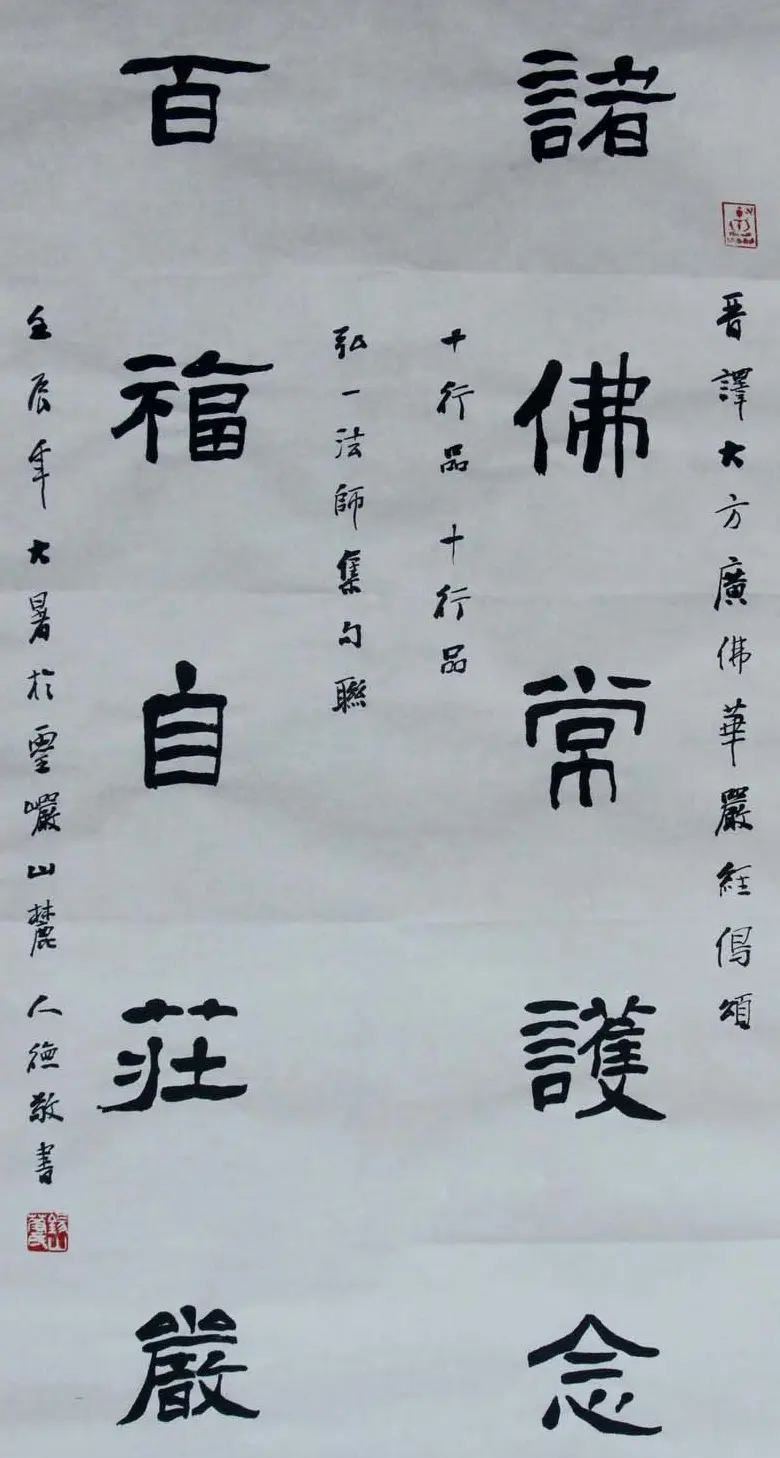 晉譯大方廣佛華嚴經偈頌
諸佛常護念
十行品十行品
弘一法師集句聯
百福自莊嚴
壬辰年大暑於靈巖山麓人德敬書